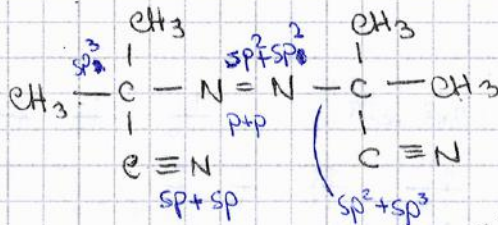 CH3 CH3
sp3 sp2+sp2
CH3 — C — N = N — C — CH3
p+p
C ≡ N C ≡ N
sp+sp sp2+sp3